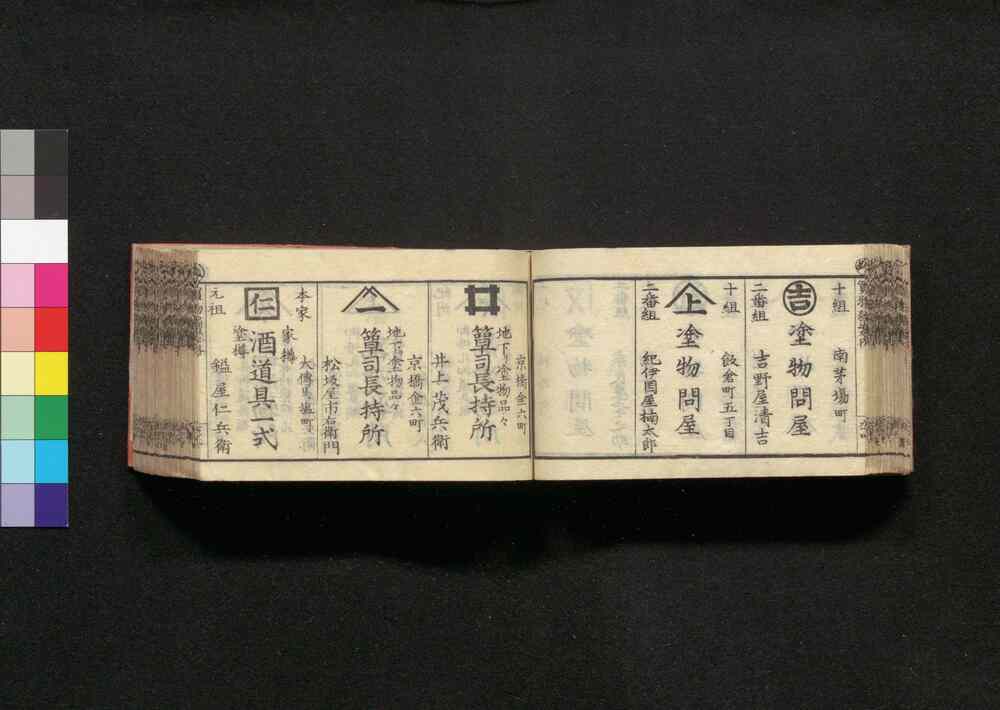 十組
南茅場町
吉
塗物問屋
二番組
吉野屋清吉
十組
飯倉町五丁目
上
塗物問屋
二番組
紀伊国屋楠太郎
京橋金六町
地下り塗物品々
簞司長持所
井上茂兵衛
京橋金六町
地下り塗物品々
一
簞司長持所
松坂屋市右衛門
本家
大傳馬塩町
家樽
仁
酒道具一式
塗樽
元祖
鎰屋仁兵衛